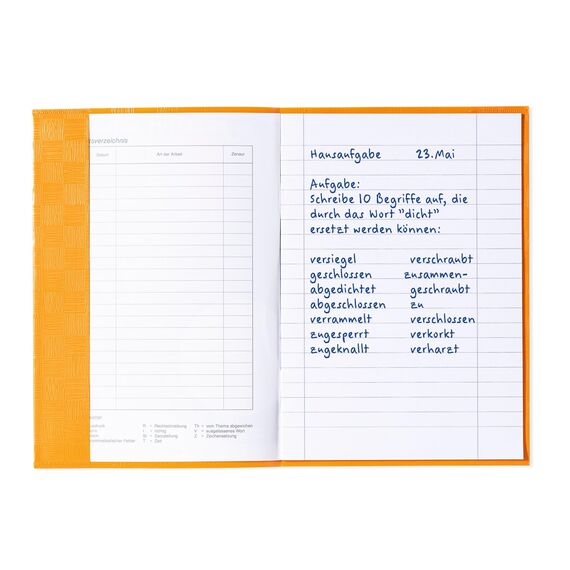 tsverzeichnis
Datum Art der Arbeit Zensur
R = Rechtschreibung Th = vom Thema abgewichen
I = richtig V = ausgelassenes Wort
St = Darstellung Z = Zeichensetzung
T = Zeit
Hausaufgabe 23. Mai
Aufgabe:
Schreibe 10 Begriffe auf, die
durch das Wort "dicht"
ersetzt werden können:
versiegel verschraubt
geschlossen zusammen-
abgedichtet geschraubt
abgeschlossen zu
verrammelt verschlossen
zugesperrt verkorkt
zugeknallt verharzt